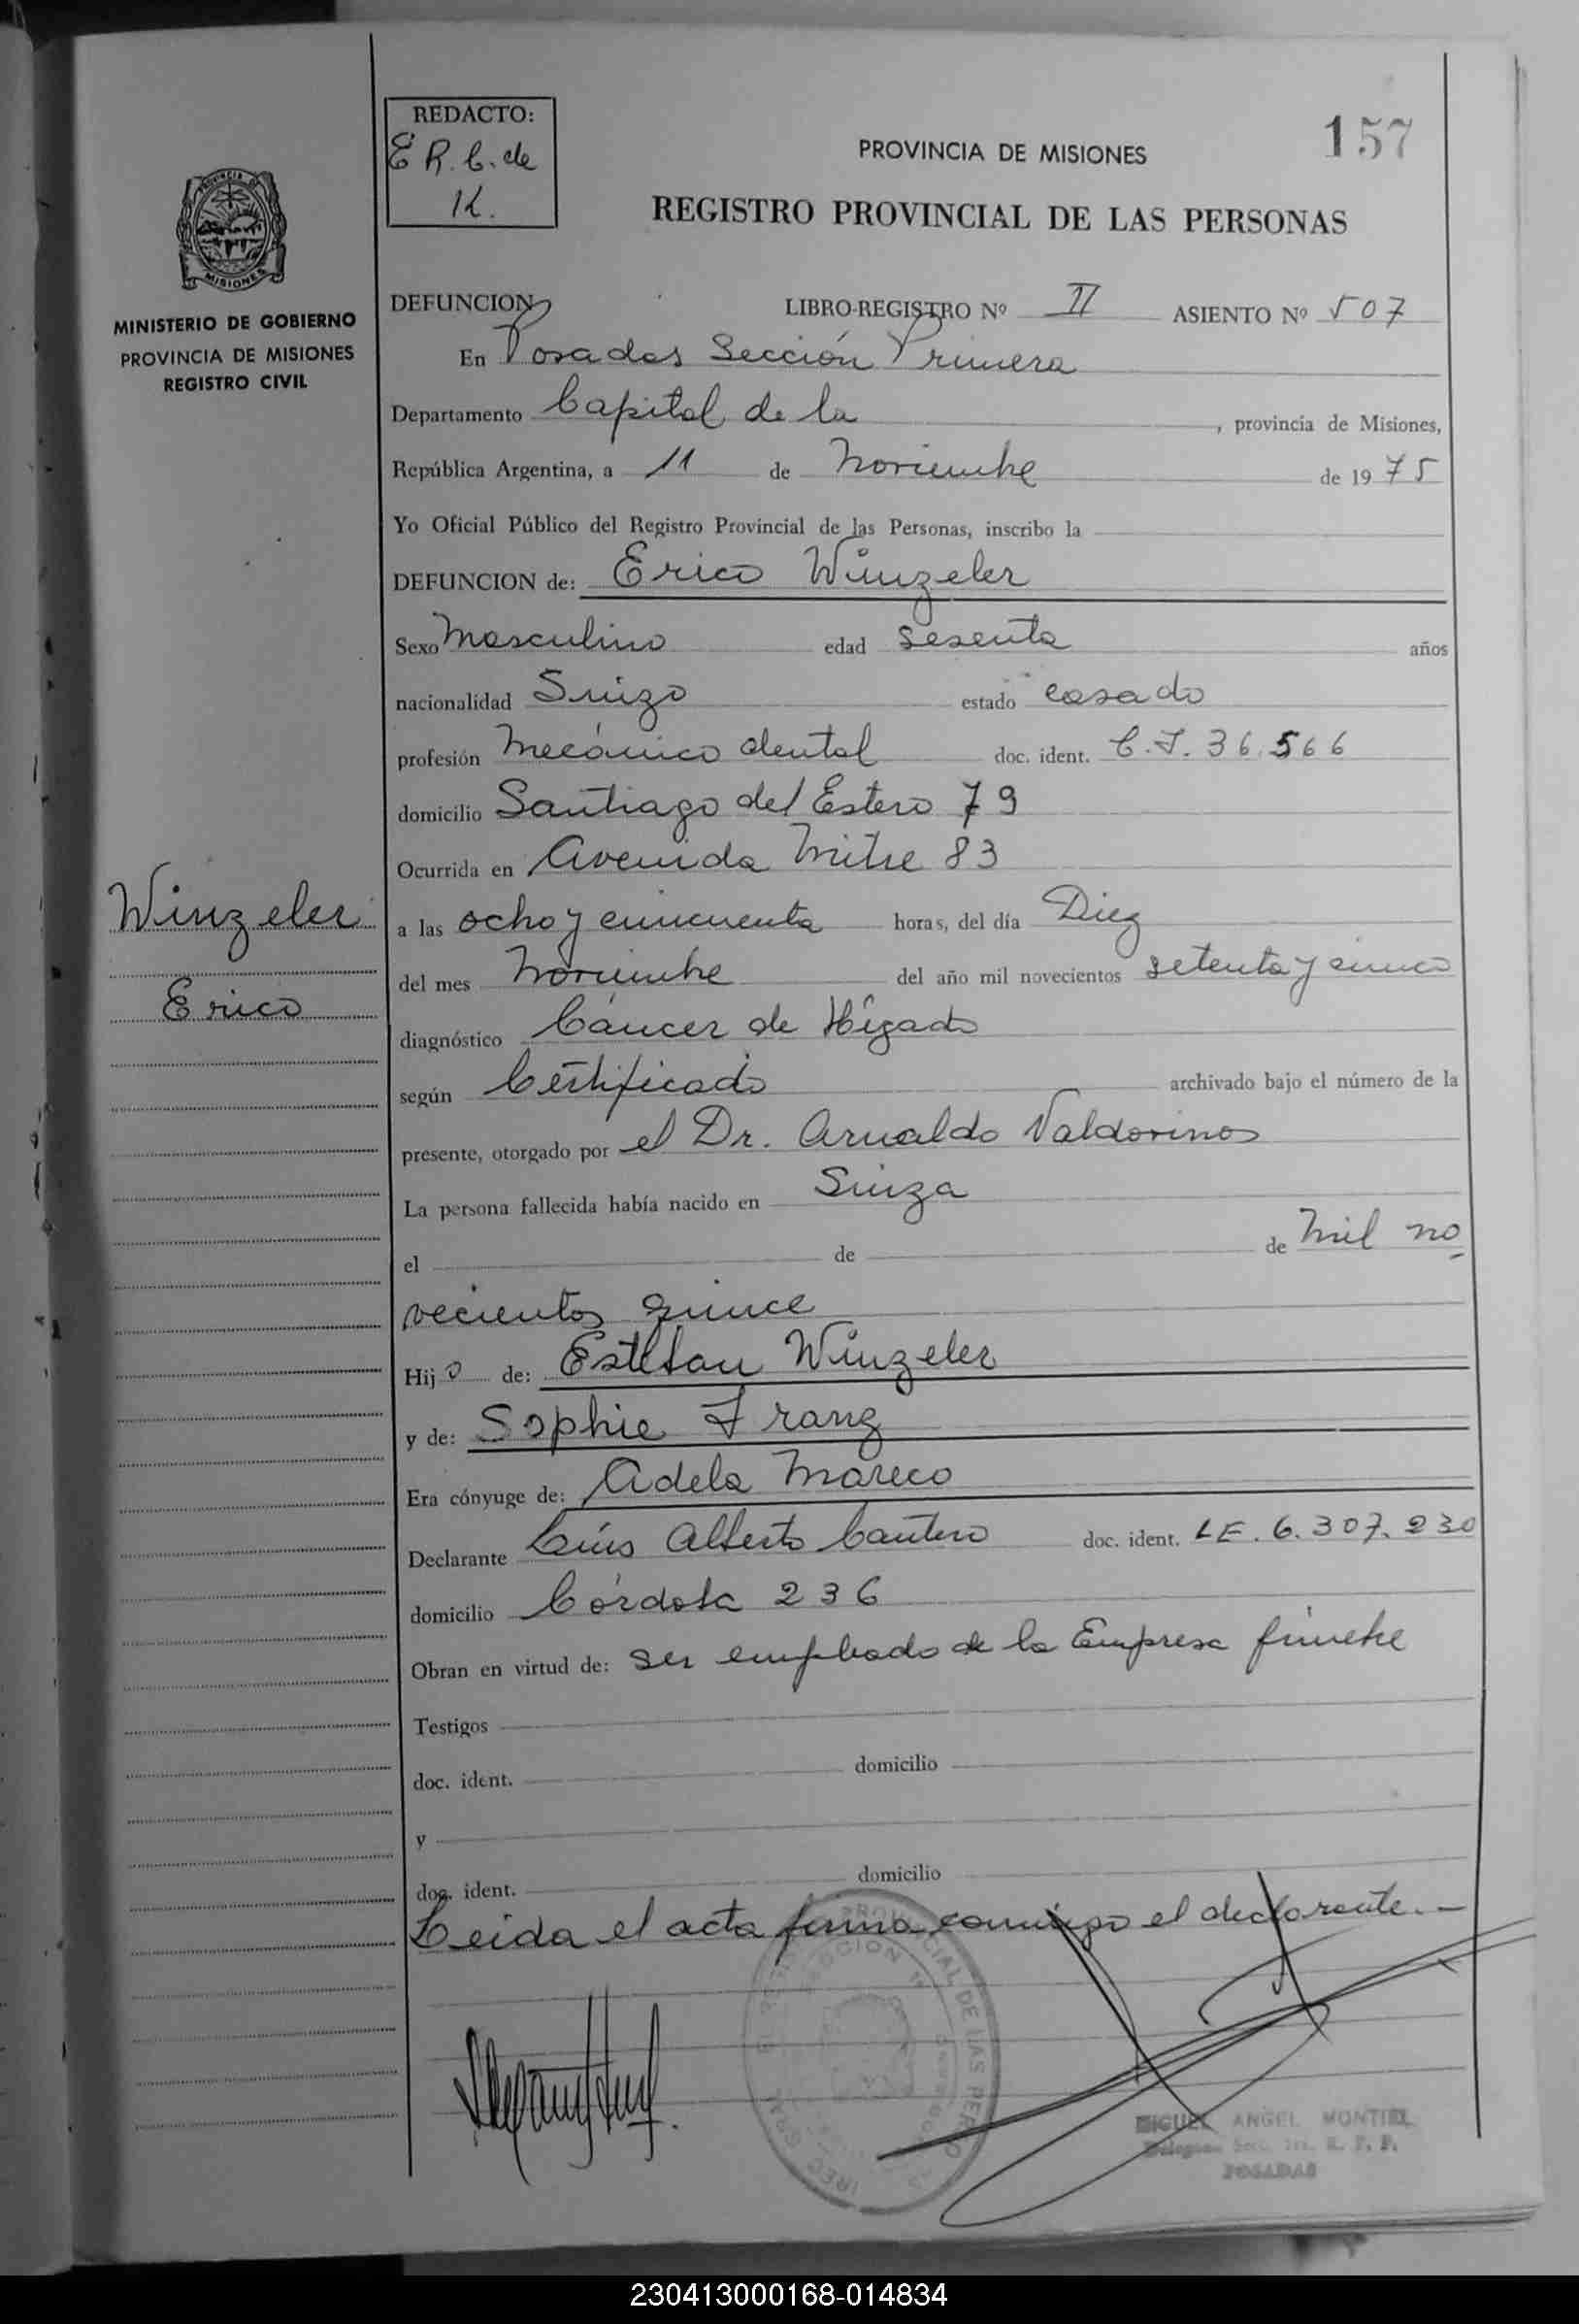 REDACTO:
E R. C. de
K.
157
PROVINCIA DE MISIONES
REGISTRO PROVINCIAL DE LAS PERSONAS
MISIONES
MINISTERIO DE GOBIERNO
PROVINCIA DE MISIONES
REGISTRO CIVIL
DEFUNCION LIBRO-REGISTRO Nº II ASIENTO Nº 507
En Posadas Sección Primera
Departamento Capital de la , provincia de Misiones,
República Argentina, a 11 de Noviembre de 1975
Yo Oficial Público del Registro Provincial de las Personas, inscribo la
DEFUNCION de: Erico Winzeler
Sexo Masculino edad sesenta años
nacionalidad Suizo estado casado
profesión Mecánico dental doc. ident. C.I. 36.566
domicilio Santiago del Estero 79
Ocurrida en Avenida Mitre 83
Winzeler
Erico
a las ocho y cincuenta horas, del día Diez
del mes Noviembre del año mil novecientos setenta y cinco
diagnóstico Cáncer de Hígado
según Certificado archivado bajo el número de la
presente, otorgado por el Dr. Arnaldo Valdovinos
La persona fallecida había nacido en Suiza
el de de Mil no
vecientos quince
Hijo de: Esteban Winzeler
y de: Sophie Franz
Era cónyuge de: Adela Mareco
Declarante Luís Alberto Cantero doc. ident. LE. 6.307.230
domicilio Córdoba 236
Obran en virtud de: ser empleado de la Empresa fúnebre
Testigos
doc. ident. domicilio
y
doc. ident. domicilio
Leida el acta firma conmigo el declarante.-
MIGUEL ANGEL MONTIEL
POSADAS
230413000168-014834